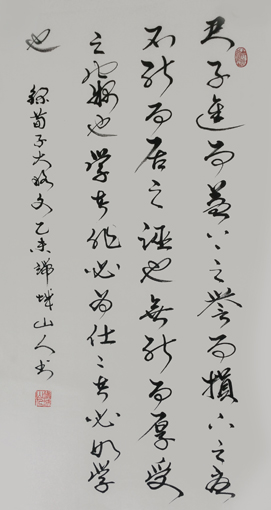 君子進而益上之誉而損下之憂
不能而居之誣也無能而厚受
之竊也學者非必為仕〻者必如学
也
録荀子大略文乙未城山人书